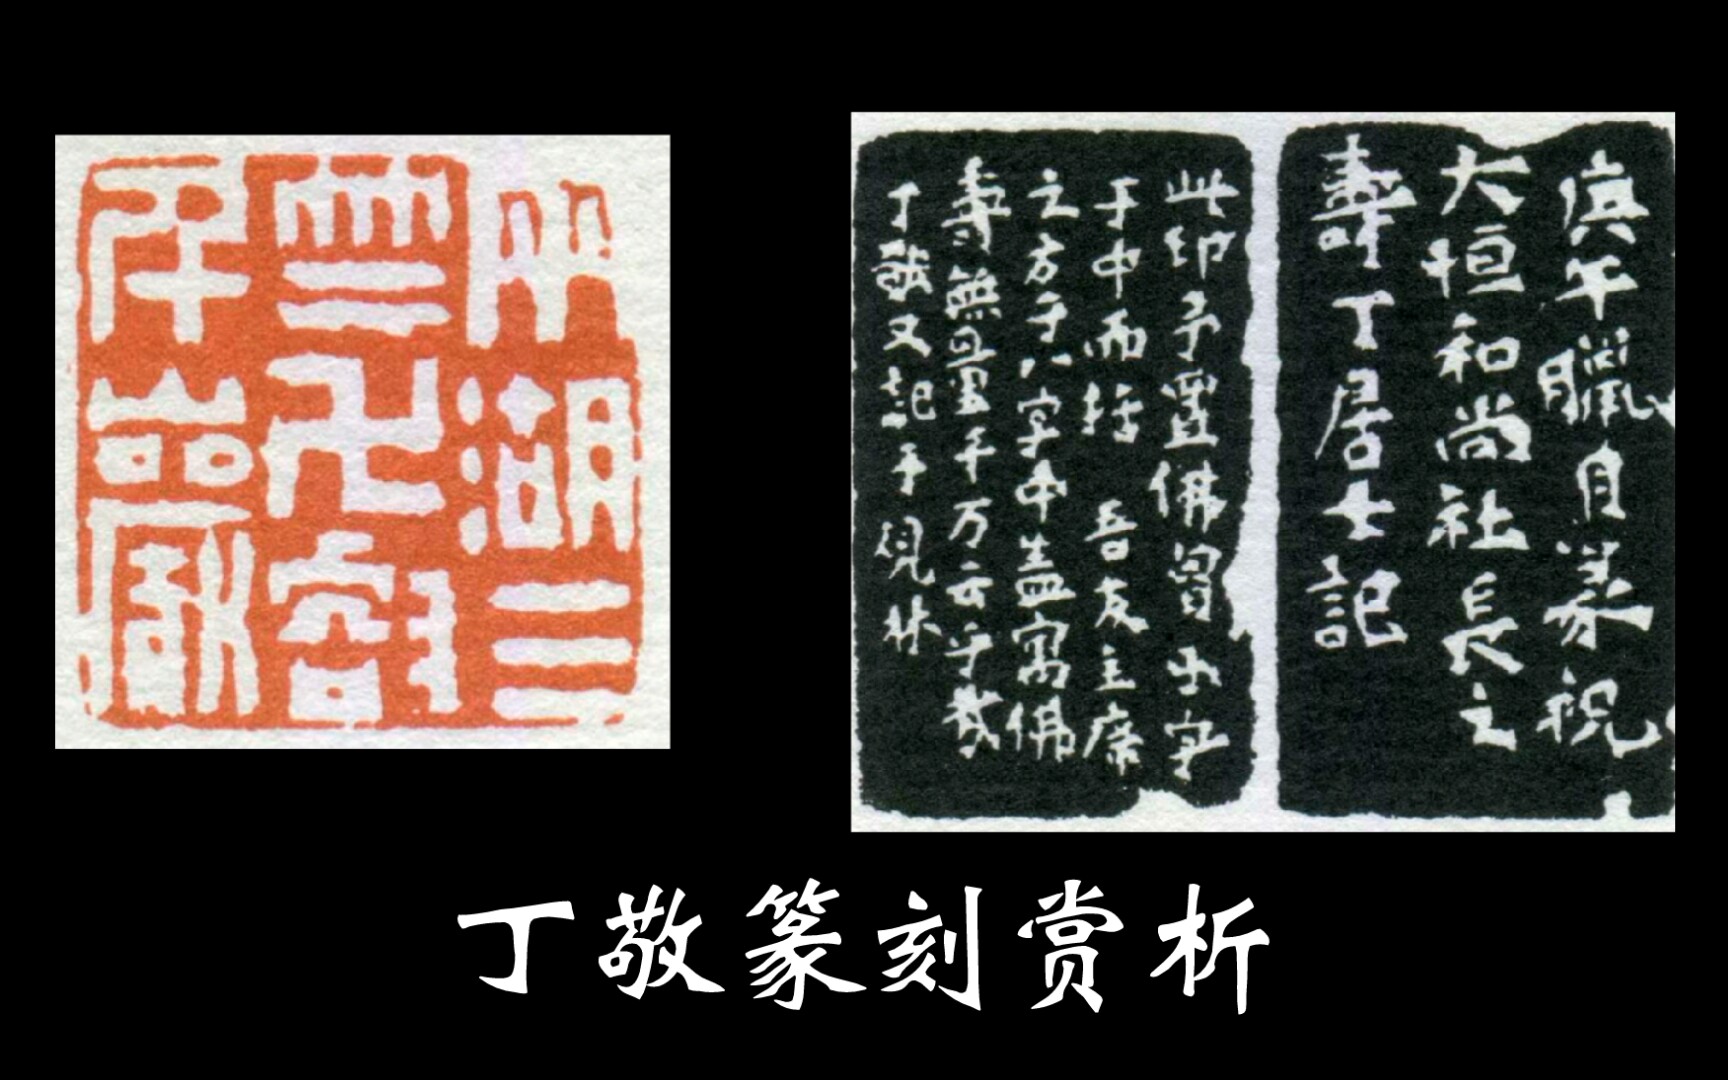 兩湖三
竺卍壑
千巖
庚午臘自篆祝
大恒和尚社長之
壽丁居士記
此印予置佛胷卍字
于中而括 吾友主席
之方于八字中盖寓佛
壽無量千万云乎哉
丁敬又記于硯林
丁敬篆刻赏析